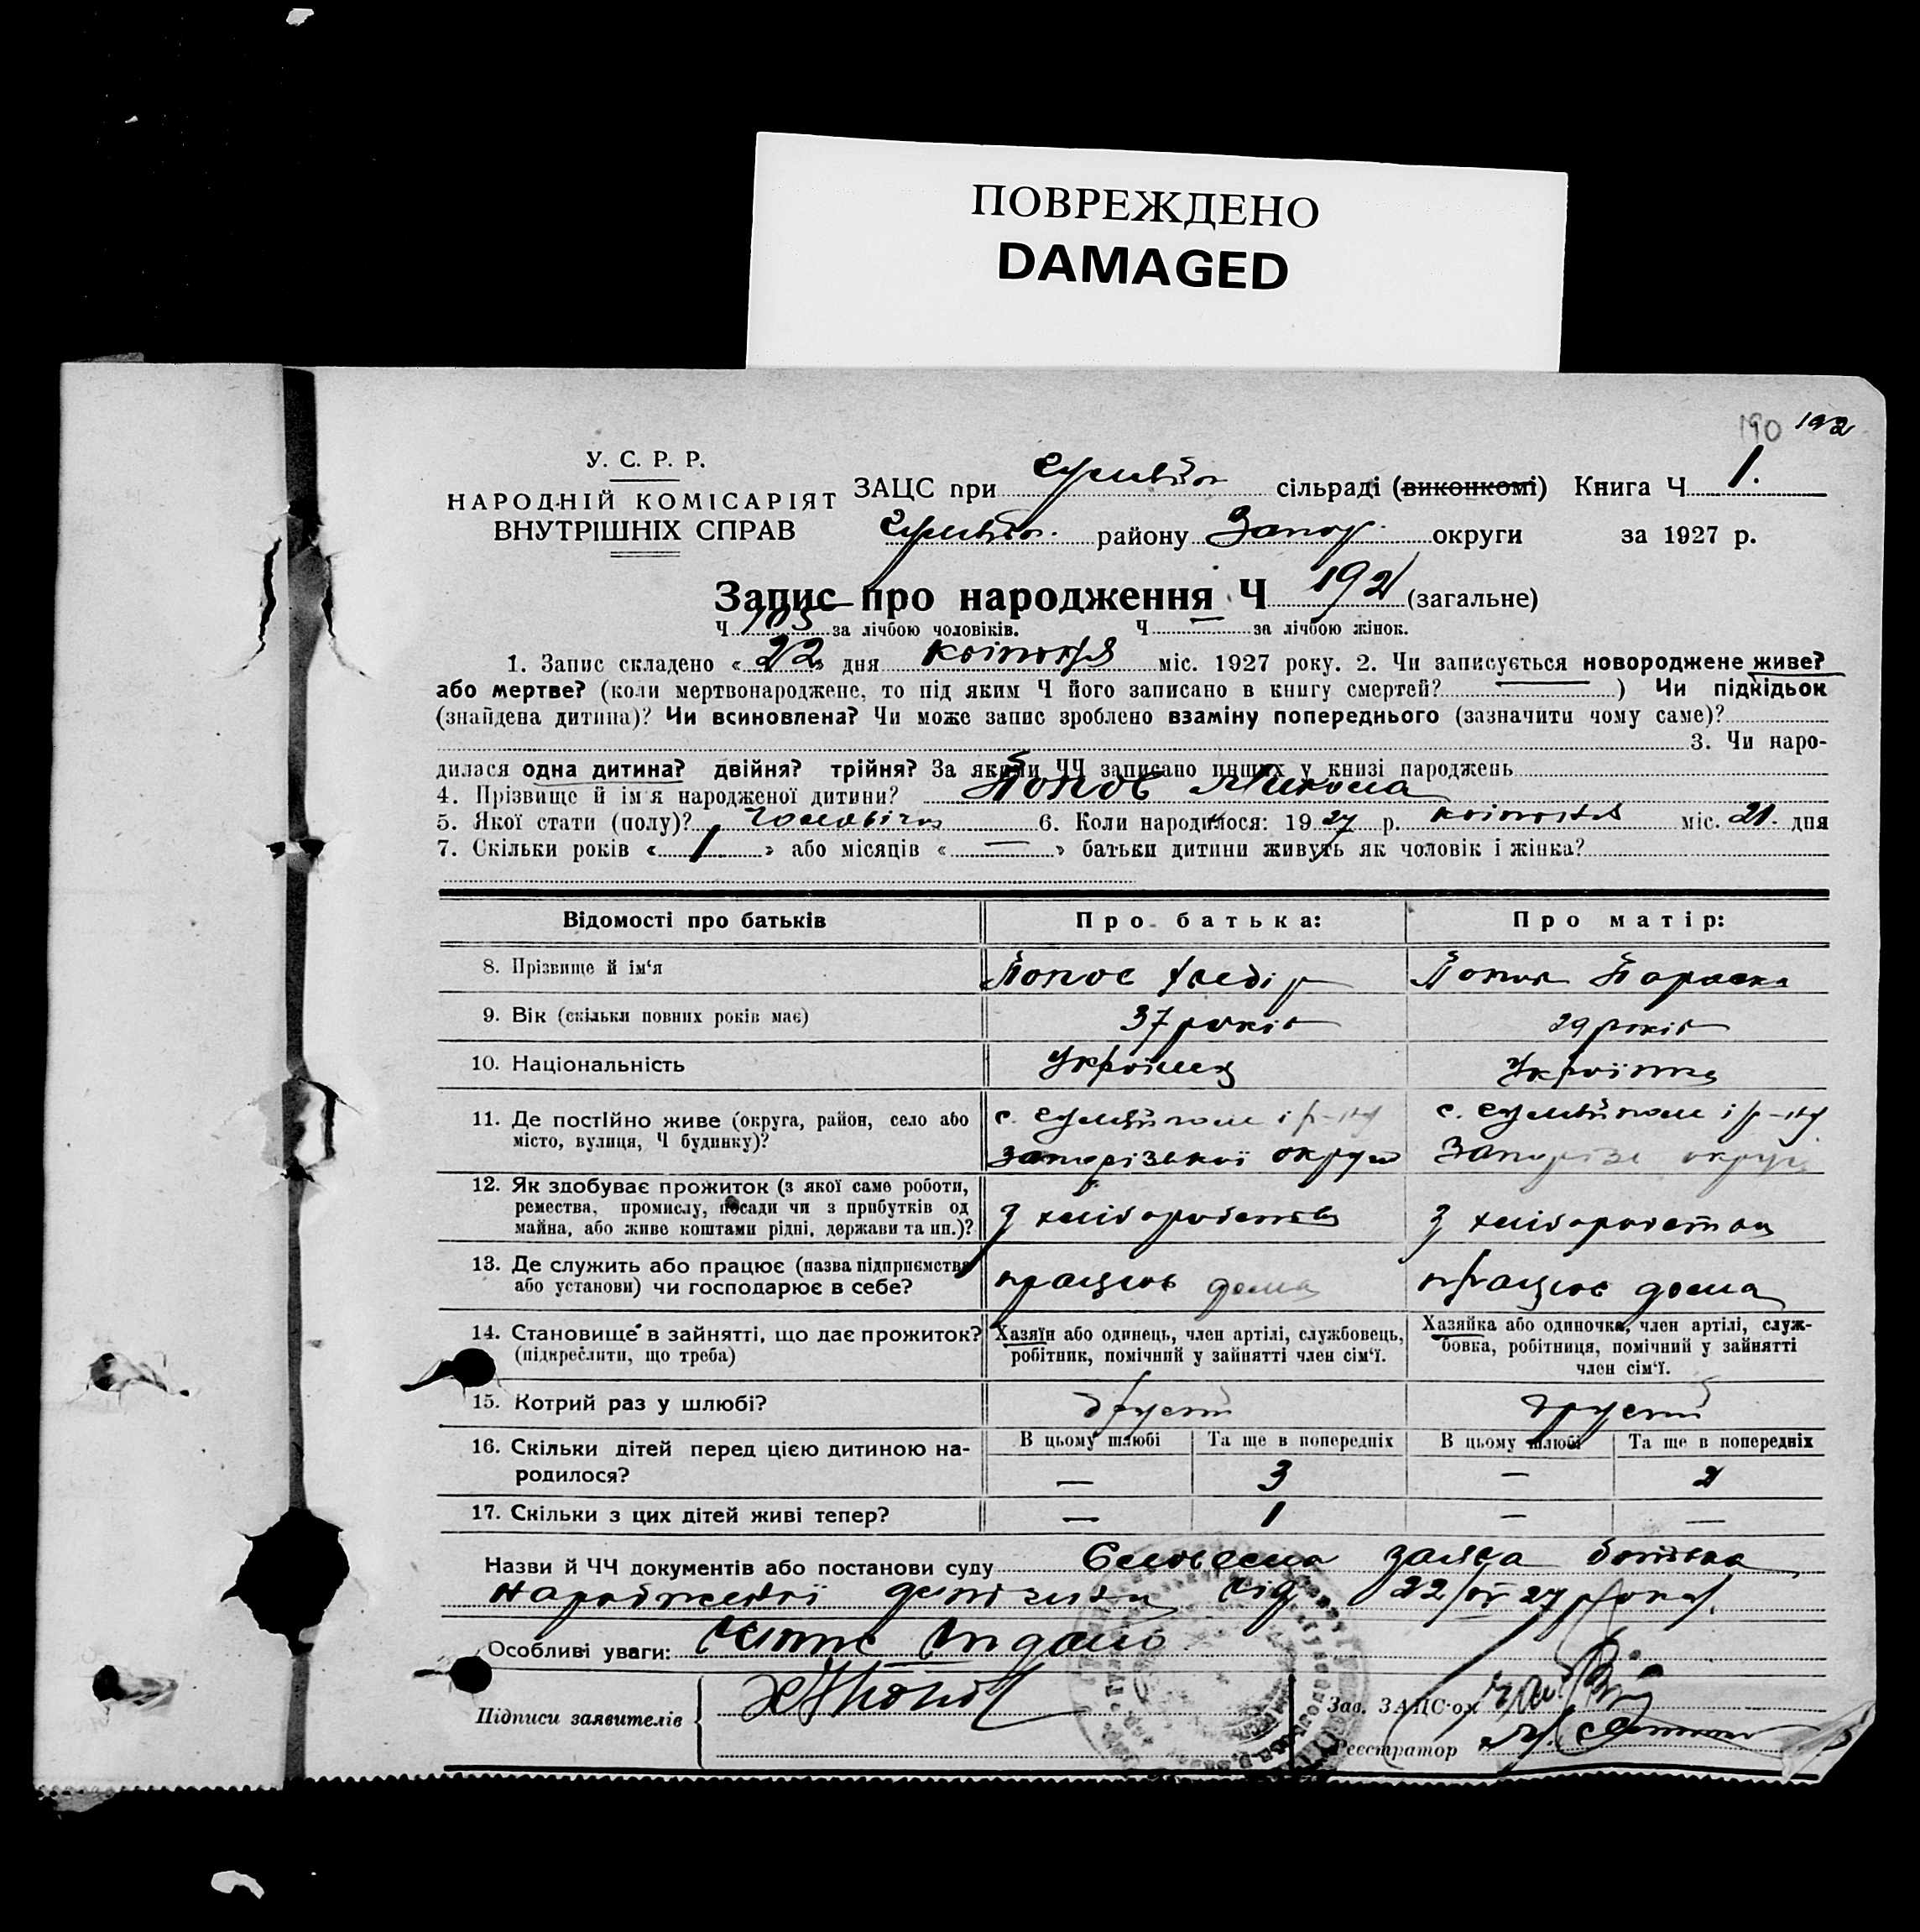 ПОВРЕЖДЕНО
DAMAGED
190 192
У. С. Р. Р.
НАРОДНІЙ КОМІСАРІЯТ
ВНУТРІШНІХ СПРАВ
ЗАЦС при сільраді (виконкомі) Книга Ч 1.
району Запор. округи за 1927 р.
Запис про народження Ч 192 (загальне)
Ч 105 за лічбою чоловіків. Ч — за лічбою жінок.
1. Запис складено « 22 » дня квітня міс. 1927 року. 2. Чи записується новороджене живе?
або мертве? (коли мертвонароджене, то під яким Ч його записано в книгу смертей? — ) Чи підкідьок
(знайдена дитина)? Чи всиновлена? Чи може запис зроблено взаміну попереднього (зазначити чому саме)?
3. Чи наро-
дилася одна дитина? двійня? трійня? За якими ЧЧ записано инших у книзі народжень
4. Прізвище й ім'я народженої дитини? Попов Микола
5. Якої стати (полу)? 6. Коли народилося: 1927 р. квітня міс. 21. дня
7. Скільки років « 1 » або місяців « — » батьки дитини живуть як чоловік і жінка?
Відомості про батьків Про батька: Про матір:
8. Прізвище й ім'я Попов Хведір Попова Параска
9. Вік (скільки повних років має) 37 років 29 років
10. Національність Українець Українка
11. Де постійно живе (округа, район, село або місто, вулиця, Ч будинку)? с. і р-ну Запорізької округи с. і р-ну Запорізь округи
12. Як здобуває прожиток (з якої саме роботи,
ремества, промислу, посади чи з прибутків од
майна, або живе коштами рідні, держави та ин.)? З хліборобства З хліборобства
13. Де служить або працює (назва підприємства
або установи) чи господарює в себе? працює дома працює дома
14. Становище в зайнятті, що дає прожиток?
(підкреслити, що треба)
Хазяїн або одинець, член артілі, службовець,
робітник, помічний у зайнятті член сім'ї.
Хазяйка або одиночка, член артілі, служ-
бовка, робітниця, помічний у зайнятті
член сім'ї.
15. Котрий раз у шлюбі? другий другий
В цьому шлюбі Та ще в попередніх В цьому шлюбі Та ще в попередніх
16. Скільки дітей перед цією дитиною на-
родилося? — 3 — 2
17. Скільки з цих дітей живі тепер? — 1 — —
Назви й ЧЧ документів або постанови суду Словесна заява батька
народженої дитини від 22/IV 27 року.
Особливі уваги:
Підписи заявителів
Зав. ЗАЦС'ом
Реєстратор